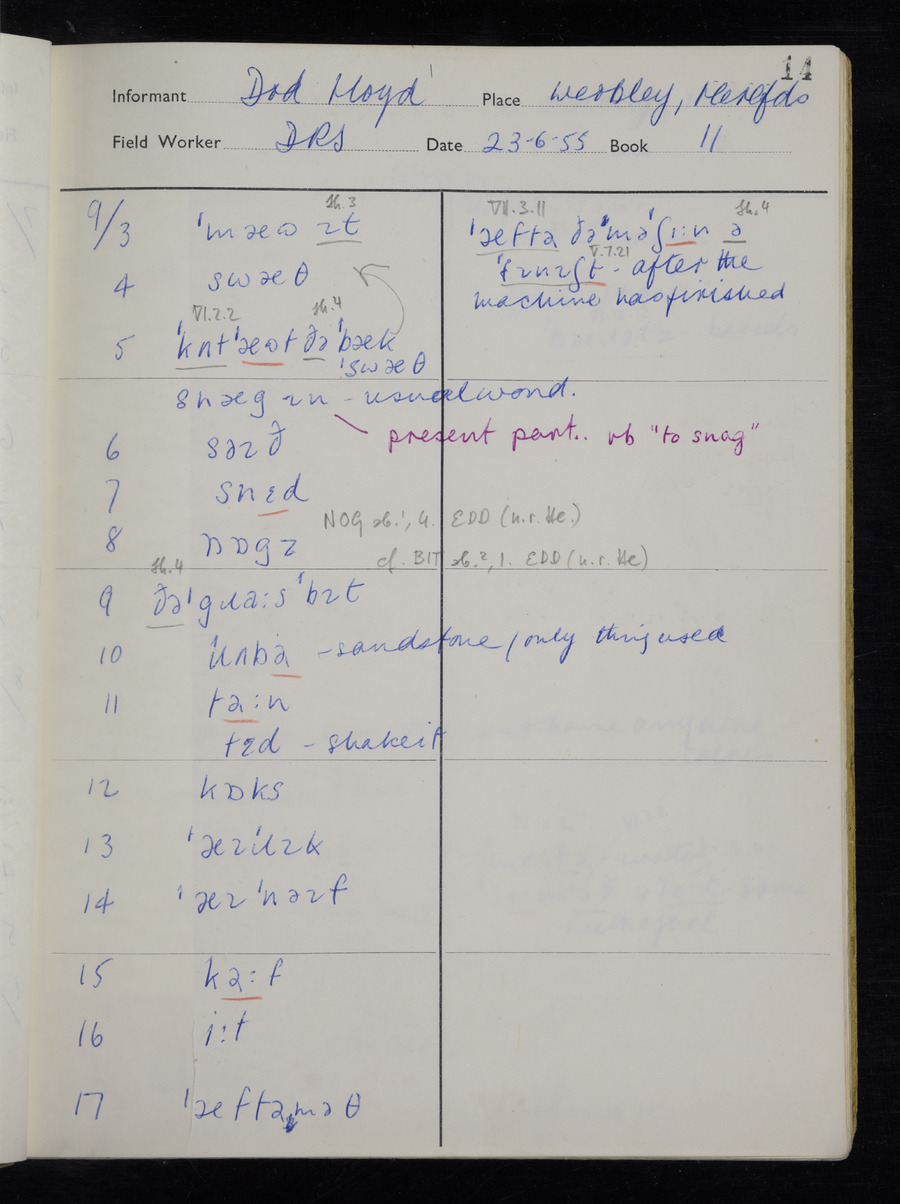 14
Informant Dod Lloyd Place Weobley, Herefds
Field Worker DRS Date 23-6-55 Book 11
sh.3
9/3 ˈmæʊ ɪt
4 swæθ
VI.2.2 sh.4
5 ˈkʌtˈæʊt ðəˈbæk
ˈswæθ
snægɪn - usual word.
present part.. vb "to snag"
6 səɪð
7 snɛd
NOG sb.¹, 4. EDD (n.r. He.)
8 nɒgz
cf. BIT sb.², 1. EDD (n.r. He)
sh.4
9 ðəˈgɹaːsˈbɪt
10 ˈɹʌbə - sandstone / only thing used
11 təːn
tɛd - shake it
12 kɒks
13 ˈæɪɹɪk
14 ˈæɪˈnəɪf
15 kəːf
16 iːt
17 ˈæftəməθ
VII.3.11 sh.4
ˈæftə ðəˈməˈʃiːn ə
V.7.21
ˈfɪnɪʃt - after the
machine has finished